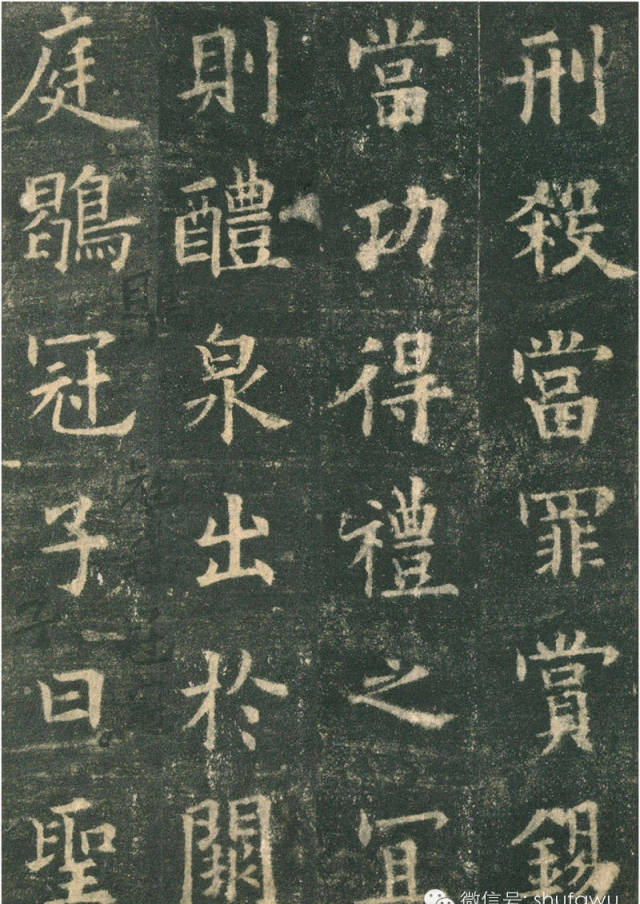 刑殺當罪賞錫
當功得禮之宜
則醴泉出於闕
庭鶡冠子曰聖
微信号: shufawu